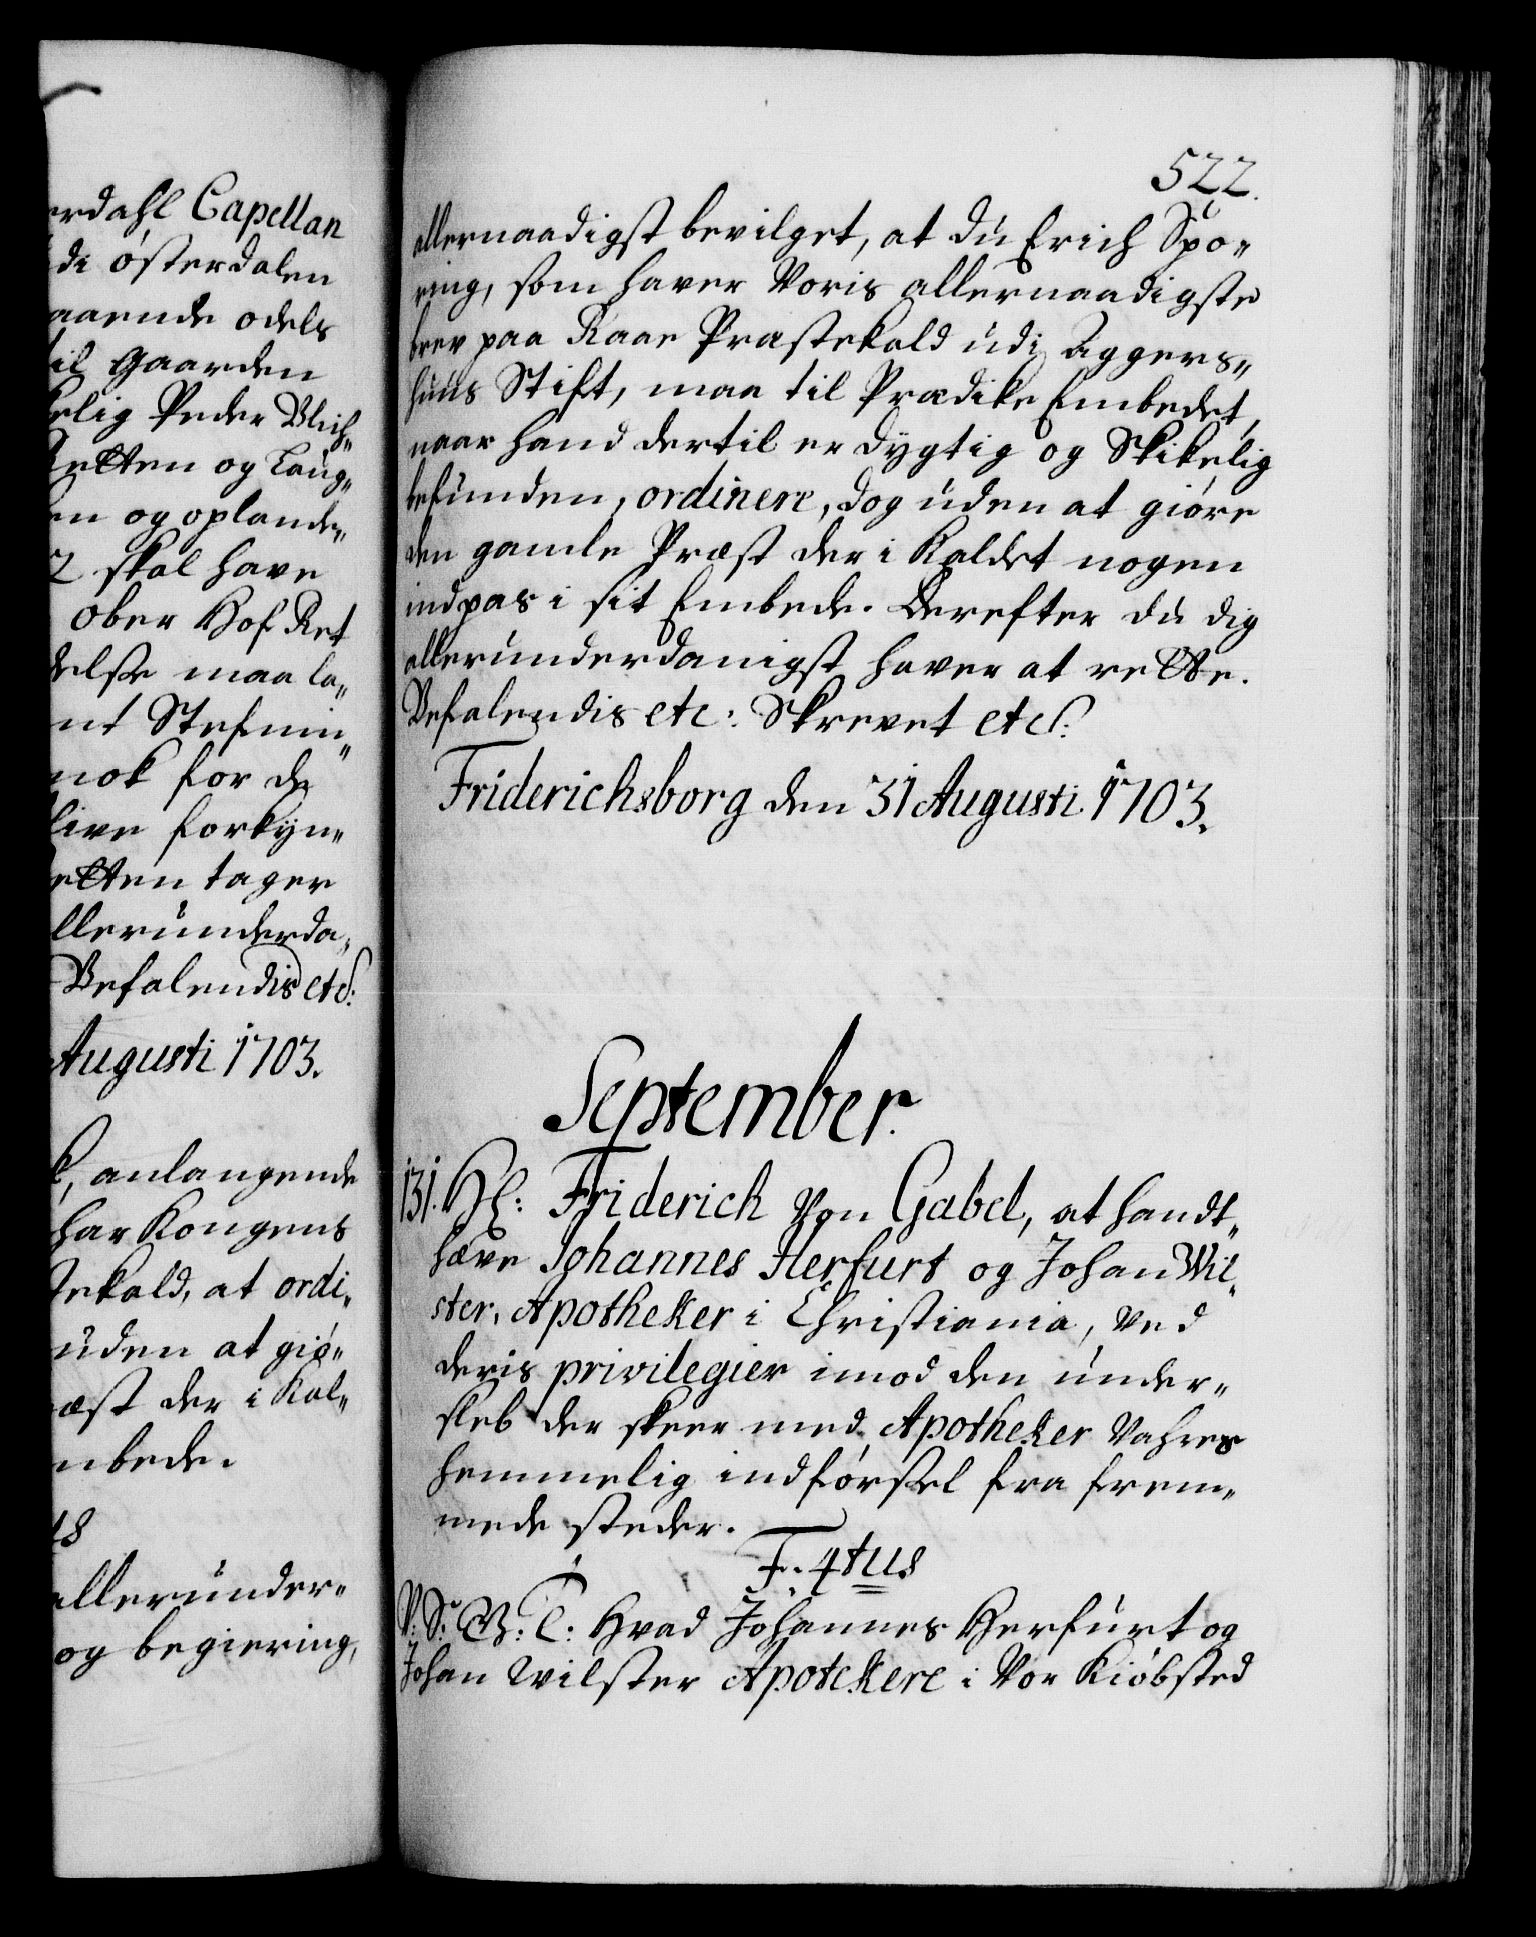 erdahl Capellan
di österdalen
aaende odels
til Gaarden
kelig Peder Blich„
Retten og Laug„
en og oplande„
2 skal have
ober Hof Ret
delse maa la„
nt Stefnin„
nok for de
live forkyn„
etten tager
llerunderda„
Befalendis etc:
Augusti 1703.
anlangende
har Kongens
stekald, at ordi„
uden at giö„
æst der i Kal„
mbede.
allerunder„
og begiering,
522.
allernaadigst bevilget, at du Erich Spö„
ring, som haver Voris allernaadigste
brev paa Raae Præstekald udi Aggers„
huus Stift, maa til Prædike Embedet,
naar hand dertil er dygtig og Skikelig
befunden, ordinere, dog uden at giöre
den gamle Præst der i Kaldet nogen
indpas i sit Embede. Derefter du dig
allerunderdanigst haver at rette.
Befalendis etc: Skrevet etc:
Friderichsborg den 31 Augusti 1703.
September.
131. Hl: Friderich Von Gabel, at handt„
hæve Johannes Herfurt og Johan Wil„
ster, Apotheker i Christiania, ved
deris privilegier imod den under„
sleb der skeer med Apotheker Vahres
hemmelig indförsel fra frem„
mede steder.
F. 4tus
V: S: G: T: Hvad Johannes Herfurt og
Johan Wilster Apotekere i Vor Kiöbsted